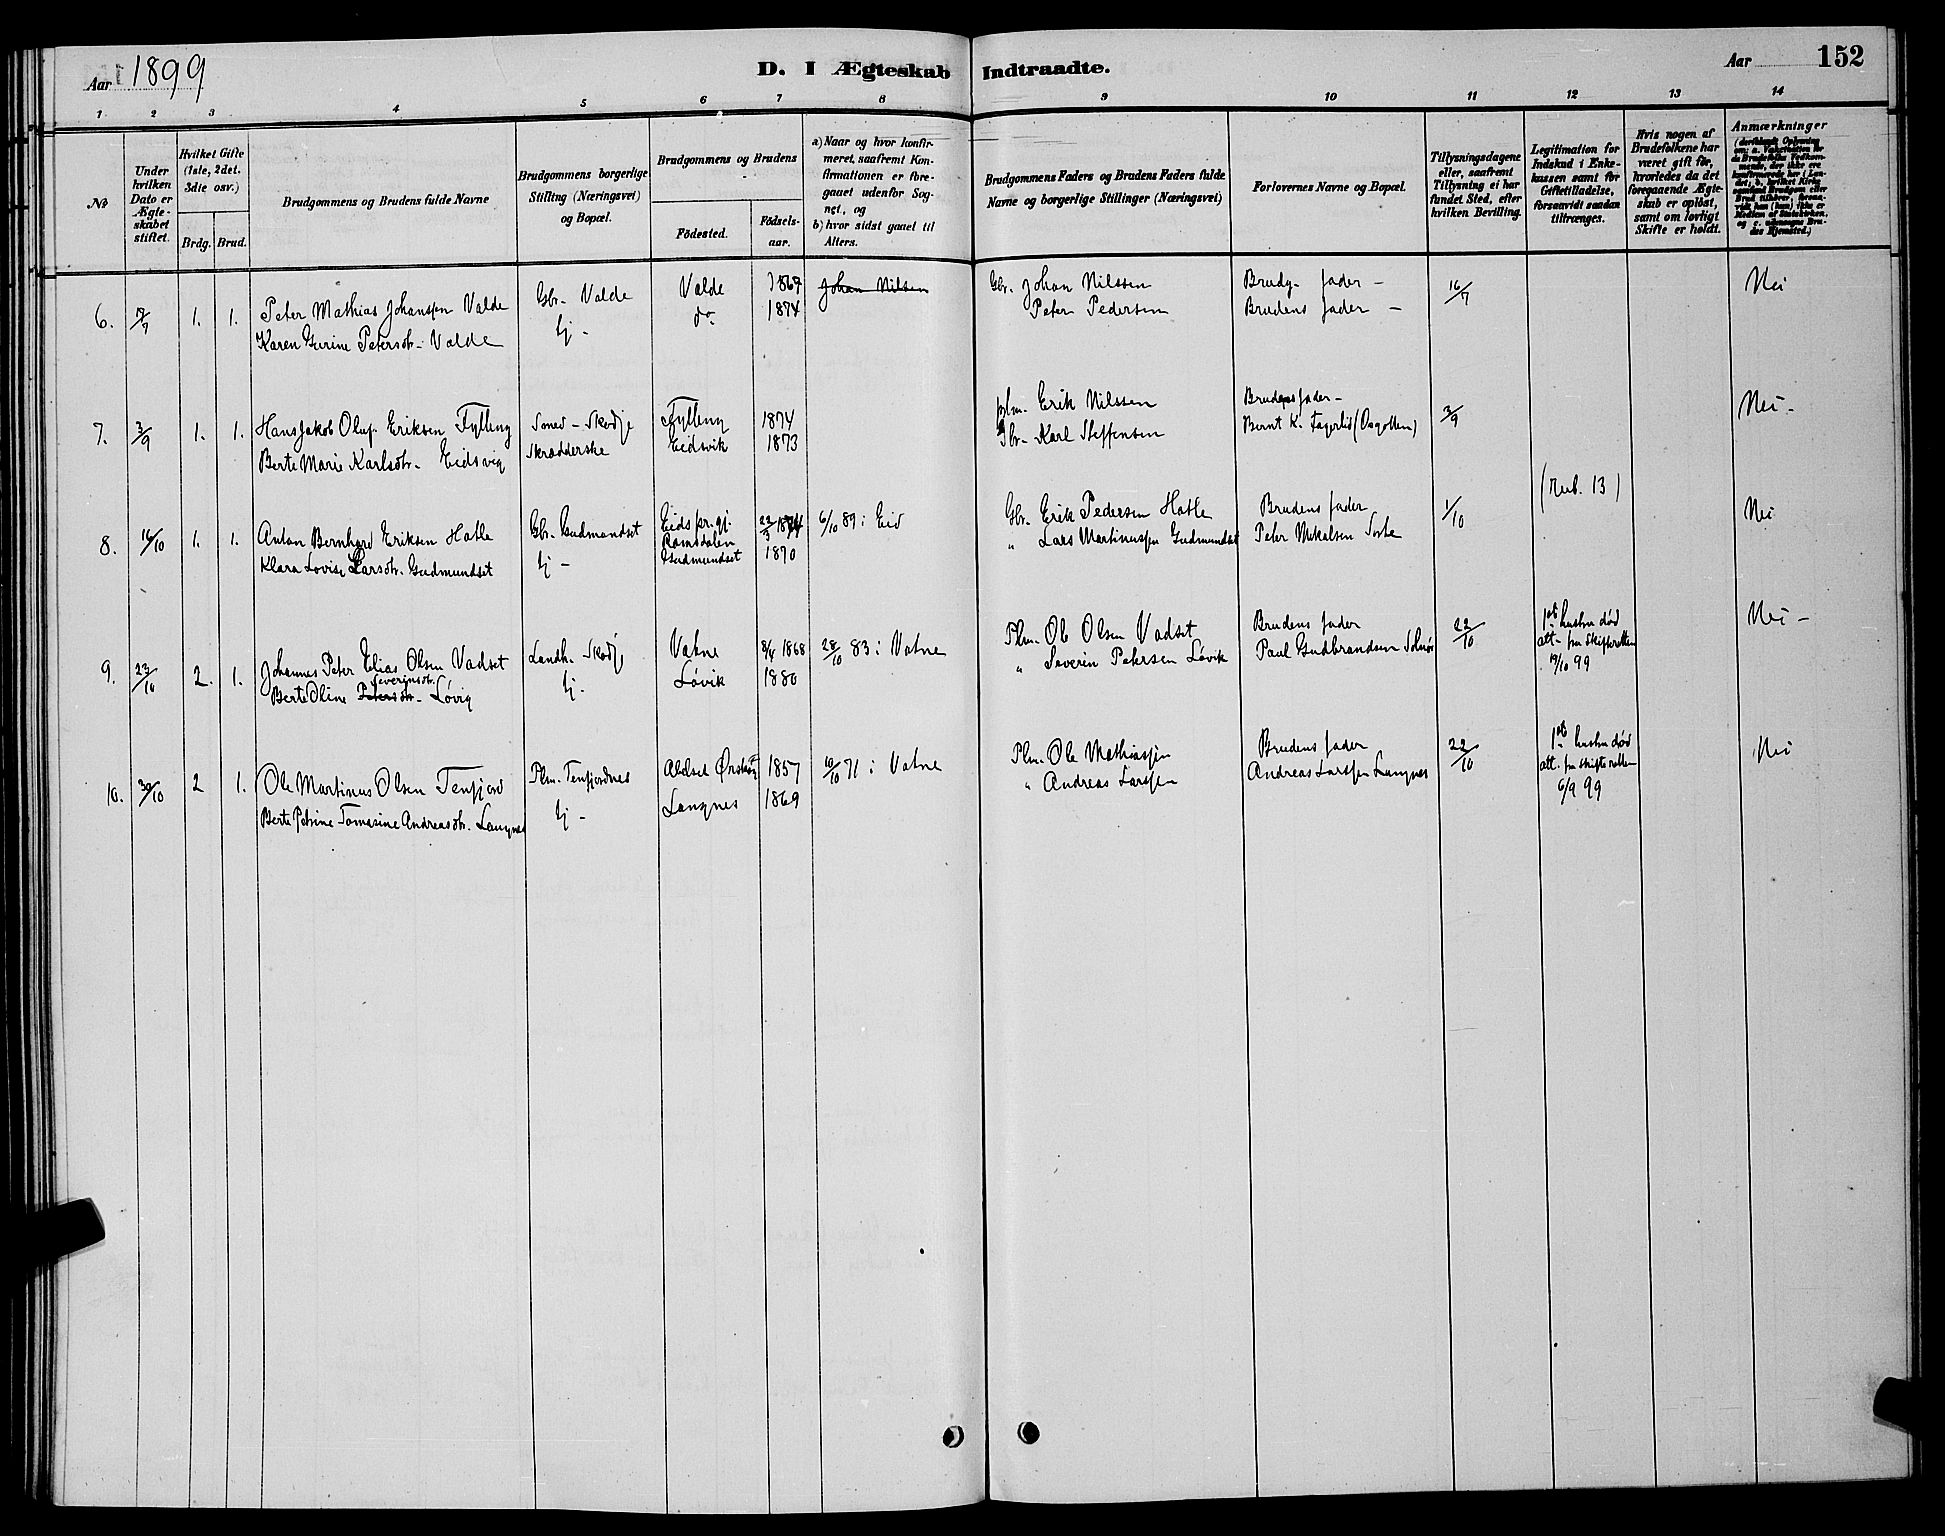 Aar 1899
D. I Ægteskab Indtraadte.
Aar
152
1
2
3
4
5
6
7
8
9
10
11
12
13
14
No
Under hvilken Dato er Ægte-skabet stiftet.
Hvilket Gifte (1ste, 2det. 3die osv.)
Brdg.
Brud.
Brudgommens og Brudens fulde Navne
Brudgommens borgerlige Stilling (Næringsvei) og Bopæl.
Brudgommens og Brudens
Födested.
Födsels-aar.
a) Naar og hvor konfir-meret, saafremt Kon-firmationen er fore-gaaet udenför Sog-net, og
b) hvor sidst gaaet til Alters.
Brudgommens Faders og Brudens Faders fulde Navne og borgerlige Stillinger (Næringsvei)
Forlovernes Navne og Bopæl.
Tillysningsdagene eller, saafremt Tillysning ei har fundet Sted, efter hvilken Bevilling.
Legitimation for Indskud i Enke-kassen samt for Giftetilladelse, forsaavidt saadan tiltrænges.
Hvis nogen af Brudefolkene har været gift för, hvorledes da det foregaaende Ægte-skab er oplöst, samt om lovligt Skifte er holdt.
Anmærkninger
6. 17/7 1. 1. Peter Mathias Johanssen Valde Gbr. Valde Valde 1867 Johan Nilsen Gbr. Johan Nilssen Brudg. fader - 16/7 Nei
Karen Gurine Petersdtr. Valde Ej - do 1874 Peter Pedersen Brudens fader -
7. 3/9 1. 1. Hans Jakob Oluf Eriksen Fylling Smed - Skodje Fylling 1874 plm. Erik Nilssen Brudens fader - 3/9 Nei -
Berte Marie Karlsdtr. Eidsvig Skrædderske Eidsvik 1873 Gbr. Karl Steffensen Bernt K. Fagerlid
(Rub. 13)
8. 16/10 1. 1. Anton Bernhard Eriksen Hatle Gbr. Gudmundset Eids pr.gj. Romsdalen 1874 6/10 89 i Eid Gbr. Erik Pedersen Hatle Brudens fader 1/10 Nei
Klara Lovise Larsdtr. Gudmundset Ej - Gudmundset 1870 " Lars Martinussen Gudmundset Peter Mikalsen
9. 23/10 2. 1. Johannes Peter Elias Olsen Vadset Landh. Skodje Vatne 3/4 1868 28/10 83 i Vatne Plm. Ole Olsen Vadset Brudens fader 22/10 1ste hustru död Nei -
Berte Oline Petersdtr. Severinsdtr. Løvig Ej. Løvik 1880 " Severin Petersen Løvik Paul Gudbrandsen Solnør att. fra Skifteretten
19/10 99
10. 30/10 2 1. Ole Martinus Olsen Tenfjord Plm. Tenfjordnes Ørskog 1857 10/10 71 i Vatne Plm. Ole Mathiassen Brudens fader 22/10 1ste hustru död Nei
Berte Petrine Tomasine Andreasdtr. Langnes Ej - Langnes 1869 " Andreas Larssen Andreas Larssen Langnes att. fra skifteretten
6/9 99